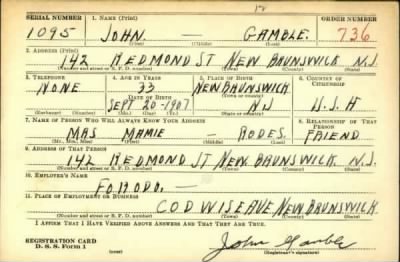 12
SERIAL NUMBER 1. NAME (Print) ORDER NUMBER
1095 JOHN. — GAMBLE. 736
(First) (Middle) (Last)
2. ADDRESS (Print)
142 REDMOND ST NEW BRUNSWICK N.J.
(Number and street or R. F. D. number) (Town) (County) (State)
3. TELEPHONE 4. AGE IN YEARS 5. PLACE OF BIRTH 6. COUNTRY OF CITIZENSHIP
NONE 33 NEW BRUNSWICK
DATE OF BIRTH (Town or county)
SEPT 20-1907 NJ U.S.A
(Exchange) (Number) (Mo.) (Day) (Yr.) (State or country)
7. NAME OF PERSON WHO WILL ALWAYS KNOW YOUR ADDRESS 8. RELATIONSHIP OF THAT PERSON
MRS MAMIE — RODES. FRIEND
(Mr., Mrs., Miss) (First) (Middle) (Last)
9. ADDRESS OF THAT PERSON
142 REDMOND ST NEW BRUNSWICK N.J.
(Number and street or R. F. D. number) (Town) (County) (State)
10. EMPLOYER'S NAME
11. PLACE OF EMPLOYMENT OR BUSINESS
CODWISE AVE NEW BRUNSWICK
(Number and street or R. F. D. number) (Town) (County) (State)
I AFFIRM THAT I HAVE VERIFIED ABOVE ANSWERS AND THAT THEY ARE TRUE.
REGISTRATION CARD
D. S. S. Form 1
John Gamble
(Registrant's signature)